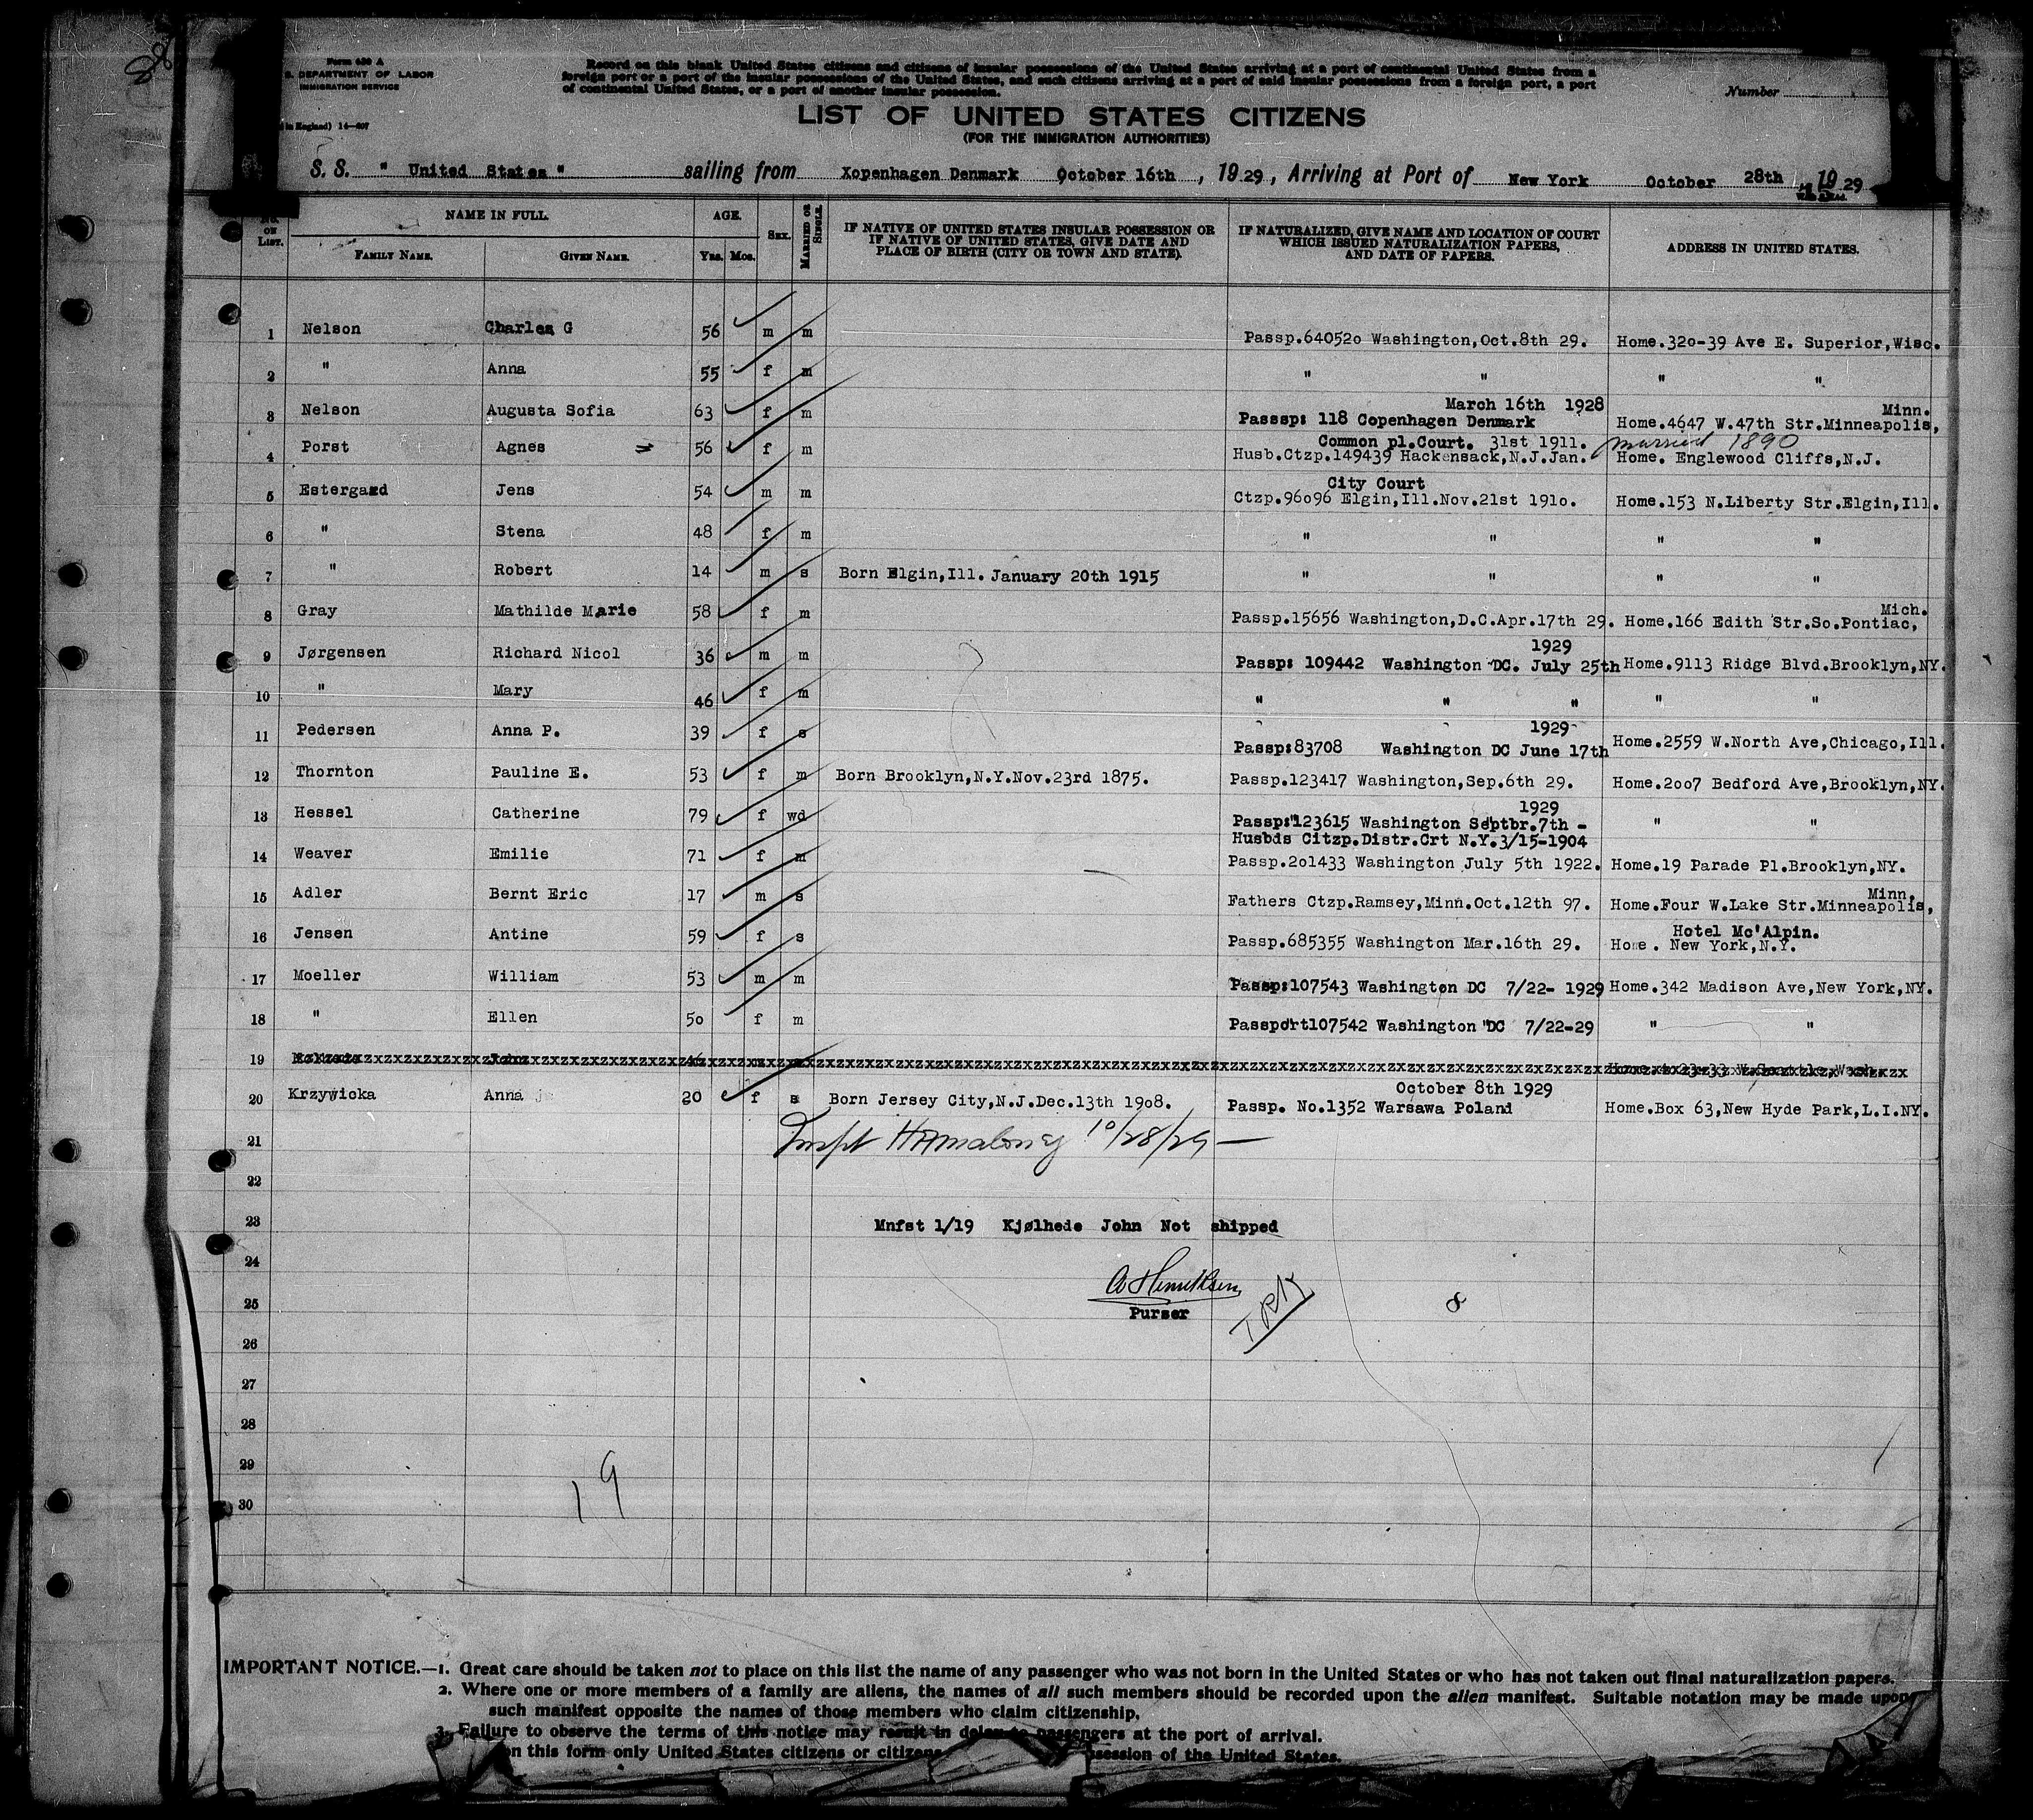 Form 630 A
DEPARTMENT OF LABOR
IMMIGRATION SERVICE
in England) 14—607
Record on this blank United States citizens and citizens of insular possessions of the United States arriving at a port of continental United States from a
foreign port or a port of the insular possessions of the United States, and such citizens arriving at a port of said insular possessions from a foreign port, a port
of continental United States, or a port of another insular possession.
Number
LIST OF UNITED STATES CITIZENS
(FOR THE IMMIGRATION AUTHORITIES)
S. S. " United States " sailing from Xopenhagen Denmark October 16th , 1929, Arriving at Port of New York October 28th 1929
No. ON LIST. NAME IN FULL. AGE. SEX. MARRIED OR SINGLE. IF NATIVE OF UNITED STATES INSULAR POSSESSION OR IF NATIVE OF UNITED STATES, GIVE DATE AND PLACE OF BIRTH (CITY OR TOWN AND STATE). IF NATURALIZED, GIVE NAME AND LOCATION OF COURT WHICH ISSUED NATURALIZATION PAPERS, AND DATE OF PAPERS. ADDRESS IN UNITED STATES.
FAMILY NAME. GIVEN NAME. YRS. MOS.
1 Nelson Charles G 56 m m Passp.640520 Washington,Oct.8th 29. Home.320-39 Ave E. Superior,Wisc.
2 " Anna 55 f m " " " "
March 16th 1928 Minn.
3 Nelson Augusta Sofia 63 f m Passsp: 118 Copenhagen Denmark Home.4647 W.47th Str.Minneapolis,
Common pl.Court. 31st 1911. married 1890
4 Porst Agnes 56 f m Husb.Ctzp.149439 Hackensack,N.J.Jan. Home. Englewood Cliffs,N.J.
City Court
5 Estergaard Jens 54 m m Ctzp.96096 Elgin,Ill.Nov.21st 1910. Home.153 N.Liberty Str.Elgin,Ill.
6 " Stena 48 f m " " " "
7 " Robert 14 m s Born Elgin,Ill. January 20th 1915 " " " "
Mich.
8 Gray Mathilde Marie 58 f m Passp.15656 Washington,D.C.Apr.17th 29. Home.166 Edith Str.So.Pontiac,
1929
9 Jørgensen Richard Nicol 36 m m Passp: 109442 Washington DC. July 25th Home.9113 Ridge Blvd.Brooklyn,NY.
10 " Mary 46 f m " " " " "
1929
11 Pedersen Anna P. 39 f s Passp:83708 Washington DC June 17th Home.2559 W.North Ave,Chicago,Ill.
12 Thornton Pauline E. 53 f m Born Brooklyn,N.Y.Nov.23rd 1875. Passp.123417 Washington,Sep.6th 29. Home.2007 Bedford Ave,Brooklyn,NY.
1929
13 Hessel Catherine 79 f wd Passp:123615 Washington Septbr.7th - " "
Husbds Citzp.Distr.Crt N.Y.3/15-1904
14 Weaver Emilie 71 f m Passp.201433 Washington July 5th 1922. Home.19 Parade Pl.Brooklyn,NY.
Minn.
15 Adler Bernt Eric 17 m s Fathers Ctzp.Ramsey,Minn.Oct.12th 97. Home.Four W.Lake Str.Minneapolis,
Hotel Mc'Alpin.
16 Jensen Antine 59 f s Passp.685355 Washington Mar.16th 29. Home. New York,N.Y.
17 Moeller William 53 m m Passp:107543 Washington DC 7/22- 1929 Home.342 Madison Ave,New York,NY.
18 " Ellen 50 f m Passport107542 Washington DC 7/22-29 " "
19
October 8th 1929
20 Krzywicka Anna 20 f s Born Jersey City,N.J.Dec.13th 1908. Passp. No.1352 Warsawa Poland Home.Box 63,New Hyde Park,L.I.NY.
21 10/28/29
22
23 Mnfst 1/19 Kjølhede John Not shipped
24
25 Purser
8
26
27
28
29
19
30
IMPORTANT NOTICE.—1. Great care should be taken not to place on this list the name of any passenger who was not born in the United States or who has not taken out final naturalization papers.
2. Where one or more members of a family are aliens, the names of all such members should be recorded upon the alien manifest. Suitable notation may be made upon
such manifest opposite the names of those members who claim citizenship,
3. Failure to observe the terms of this notice may result in delay to passengers at the port of arrival.
on this form only United States citizens or citizens session of the United States.